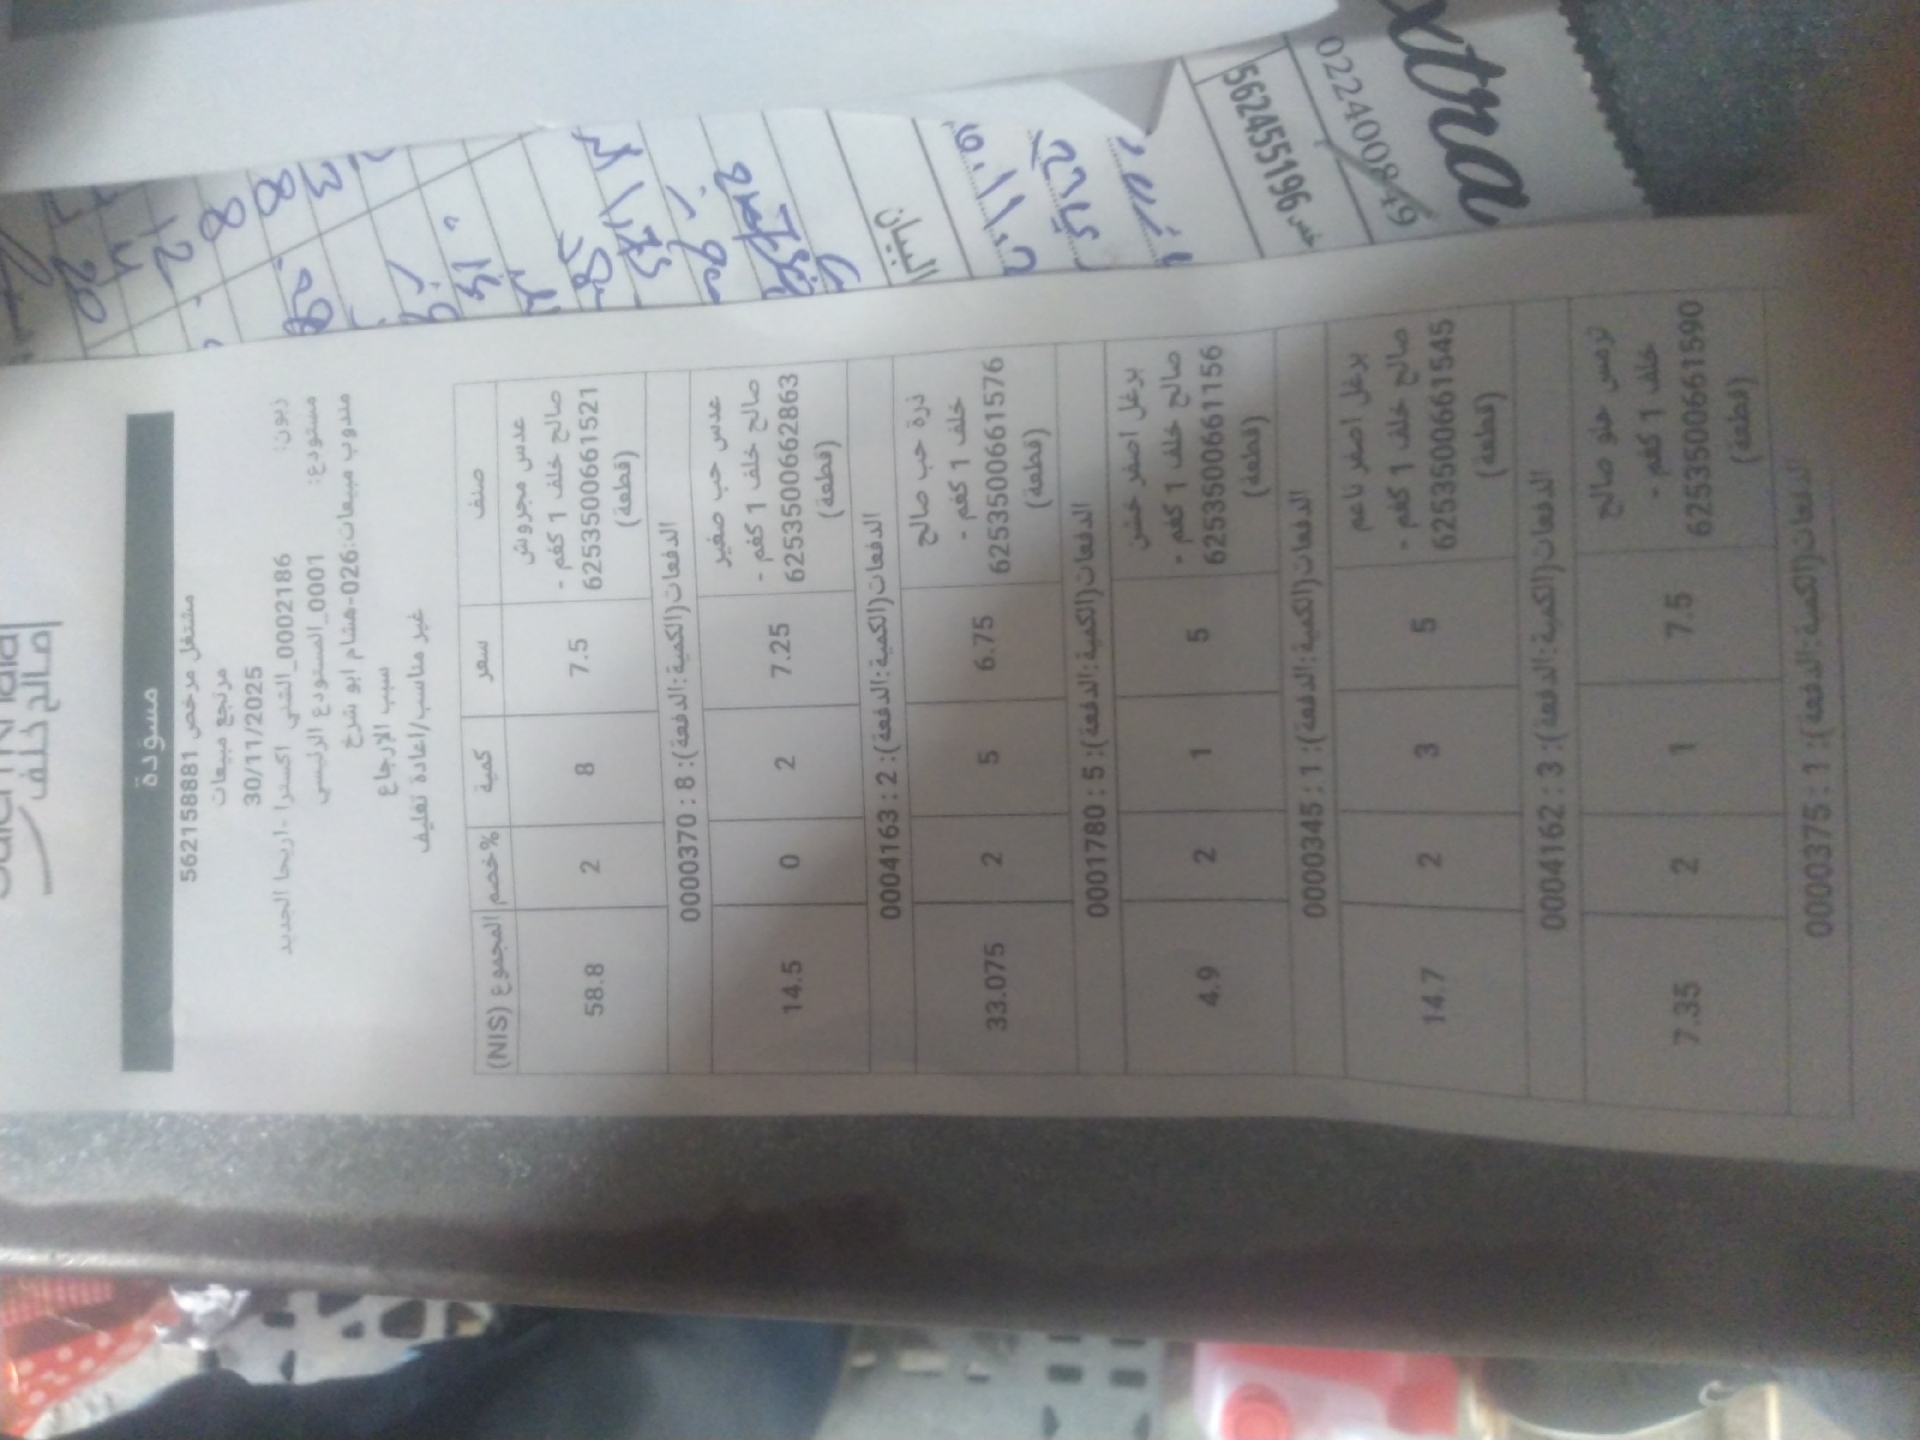 صالح خلف
مسودة
مشتغل مرخص 562158881
مرتجع مبيعات
30/11/2025
زبون: 0002186_الشني اكسترا -اريحا الجديد
مستودع: 0001_المستودع الرئيسي
مندوب مبيعات:026-هشام ابو شرخ
سبب الارجاع
غير مناسب/اعادة تغليف
صنف سعر كمية %خصم المجموع (NIS)
عدس مجروش
صالح خلف 1 كغم -
6253500661521
(قطعة)
7.5 8 2 58.8
الدفعات(الكمية:الدفعة): 8 : 0000370
عدس حب صغير
صالح خلف 1 كغم -
6253500662863
(قطعة)
7.25 2 0 14.5
الدفعات(الكمية:الدفعة): 2 : 0004163
ذرة حب صالح
خلف 1 كغم -
6253500661576
(قطعة)
6.75 5 2 33.075
الدفعات(الكمية:الدفعة): 5 : 0001780
برغل اصفر خشن
صالح خلف 1 كغم -
6253500661156
(قطعة)
5 1 2 4.9
الدفعات(الكمية:الدفعة): 1 : 0000345
برغل اصفر ناعم
صالح خلف 1 كغم -
6253500661545
(قطعة)
5 3 2 14.7
الدفعات(الكمية:الدفعة): 3 : 0004162
ترمس حلو صالح
خلف 1 كغم -
6253500661590
(قطعة)
7.5 1 2 7.35
الدفعات(الكمية:الدفعة): 1 : 0000375
البيان
562455196